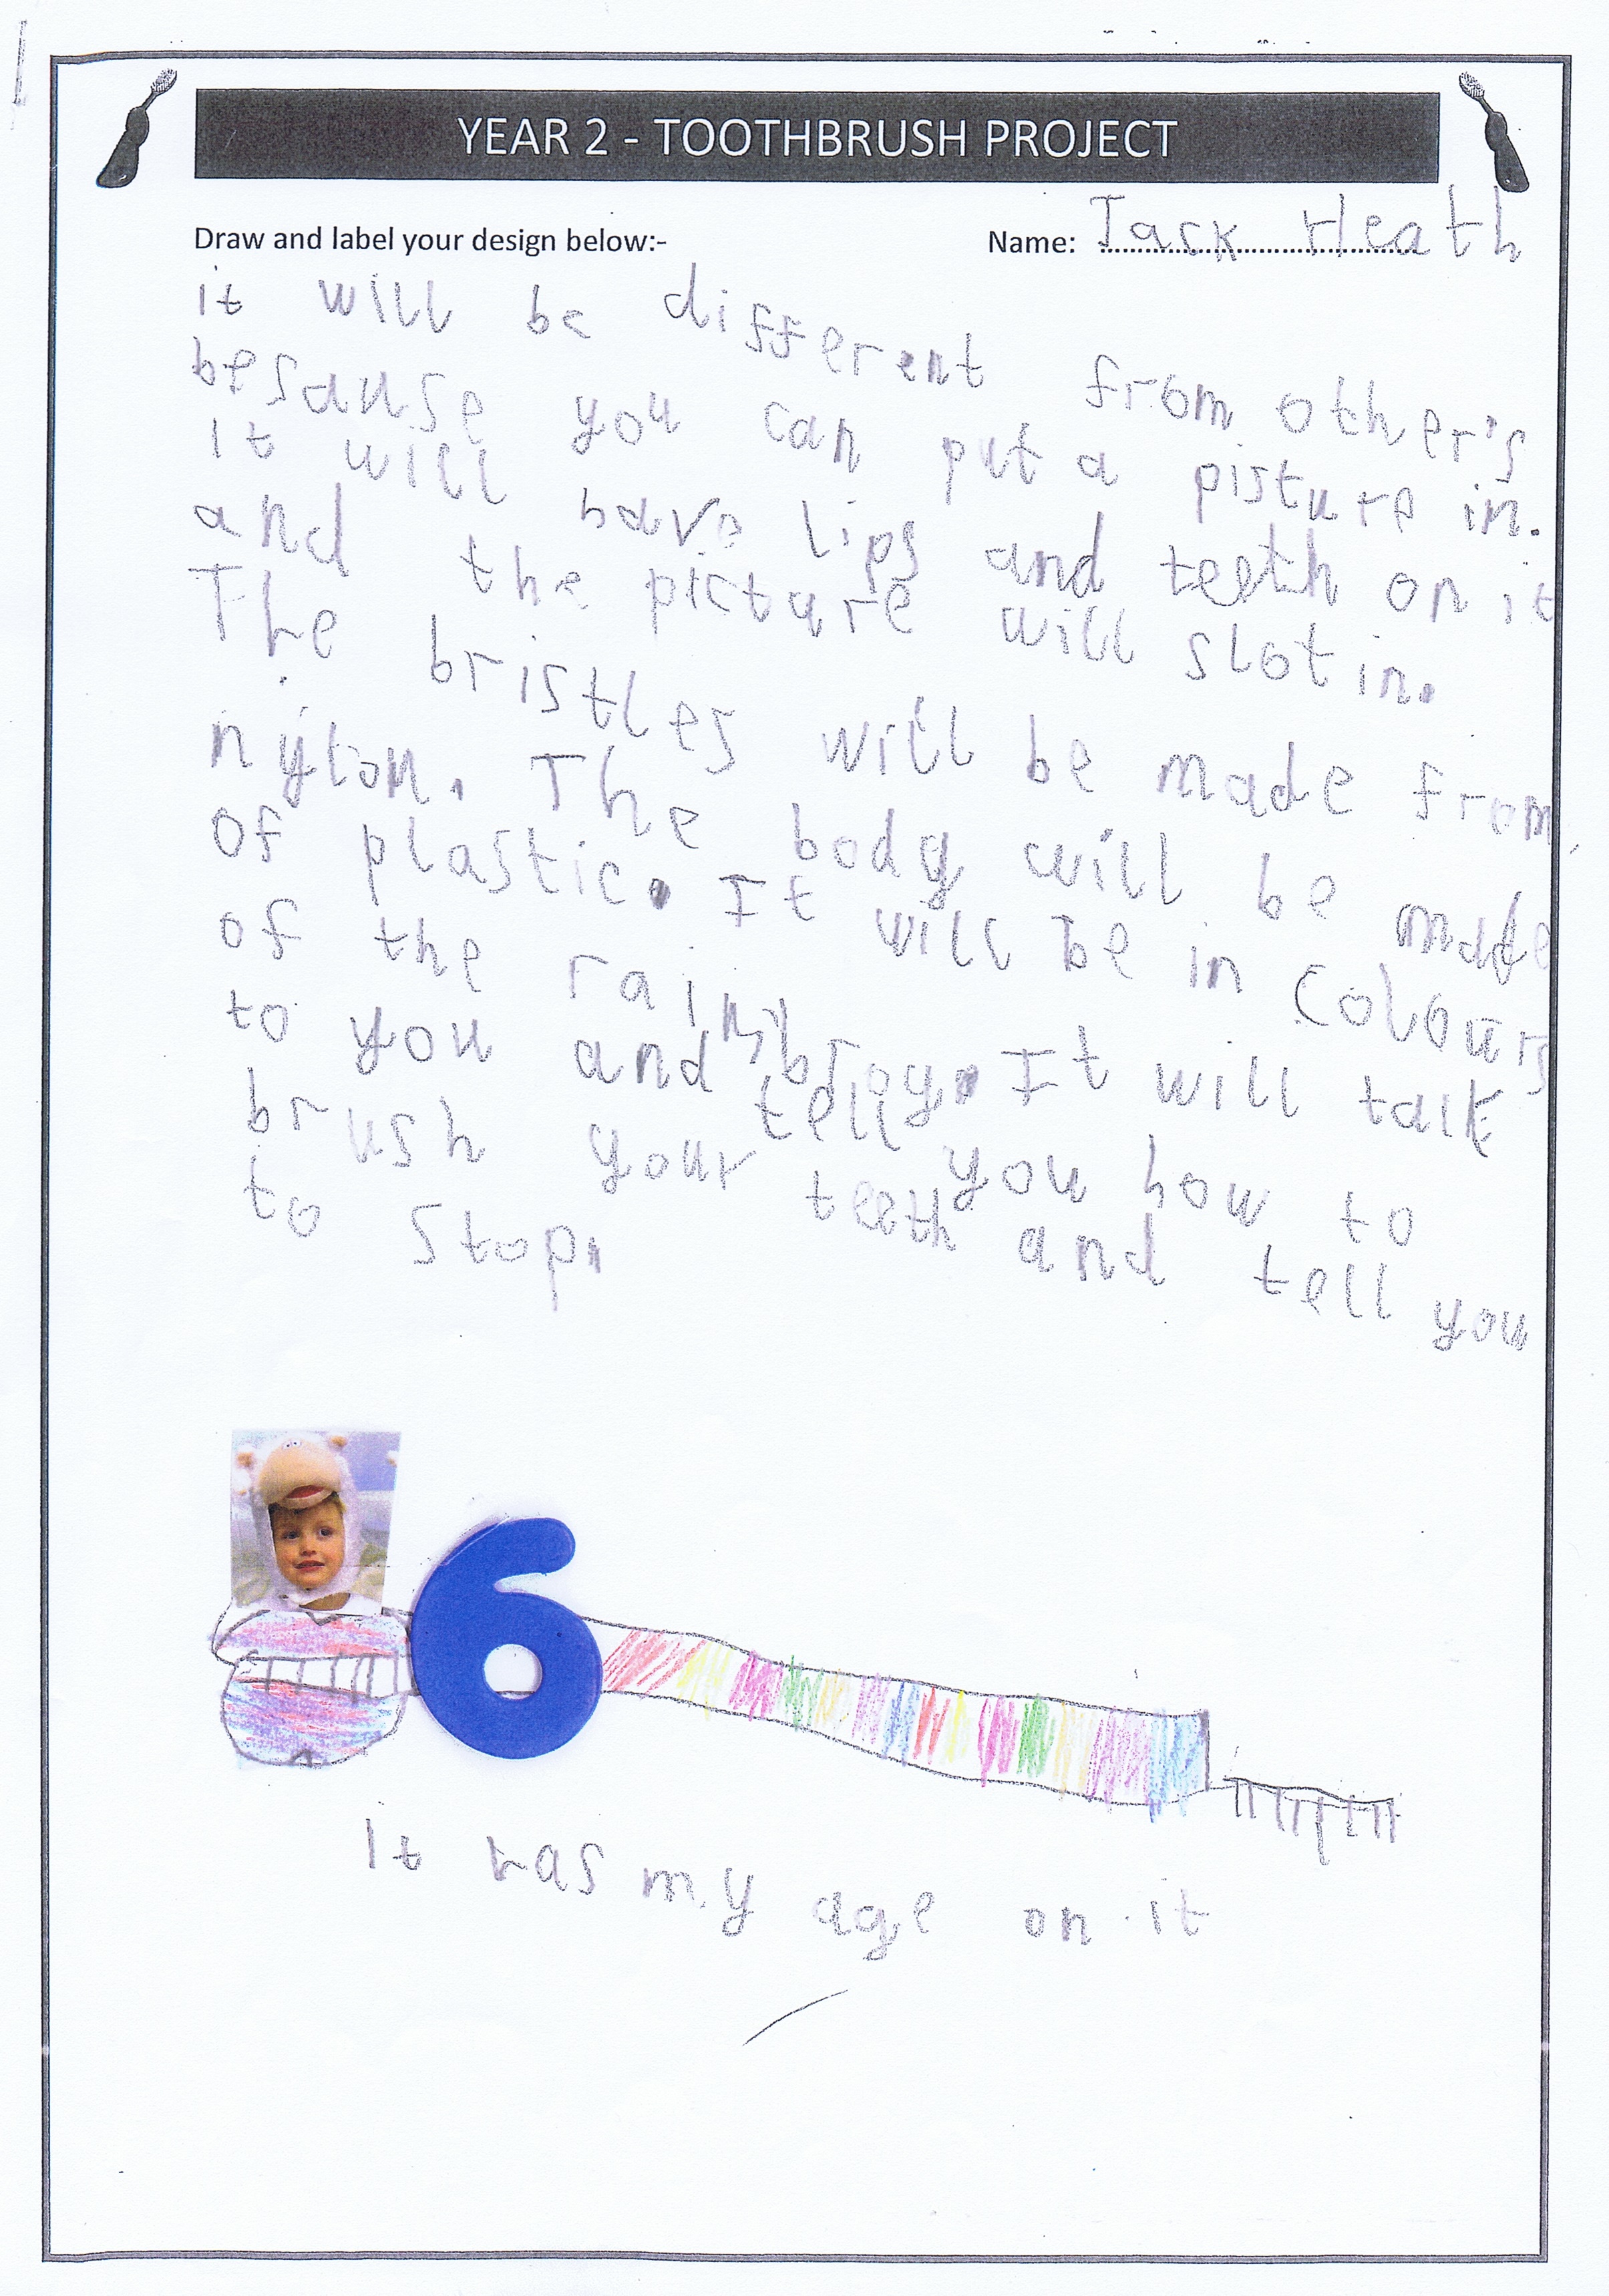 YEAR 2 - TOOTHBRUSH PROJECT
Draw and label your design below:-
Name: Jack Heath
it will be different from other's
besause you can put a pisture in.
It will have lips and teeth on it
and the picture will slot in.
The bristles will be made from
nylon. The body will be made
of plastic. It will be in colours
of the rainbow. It will talk
to you and tell you how to
brush your teeth and tell you
to stop.
6
It has my age on it